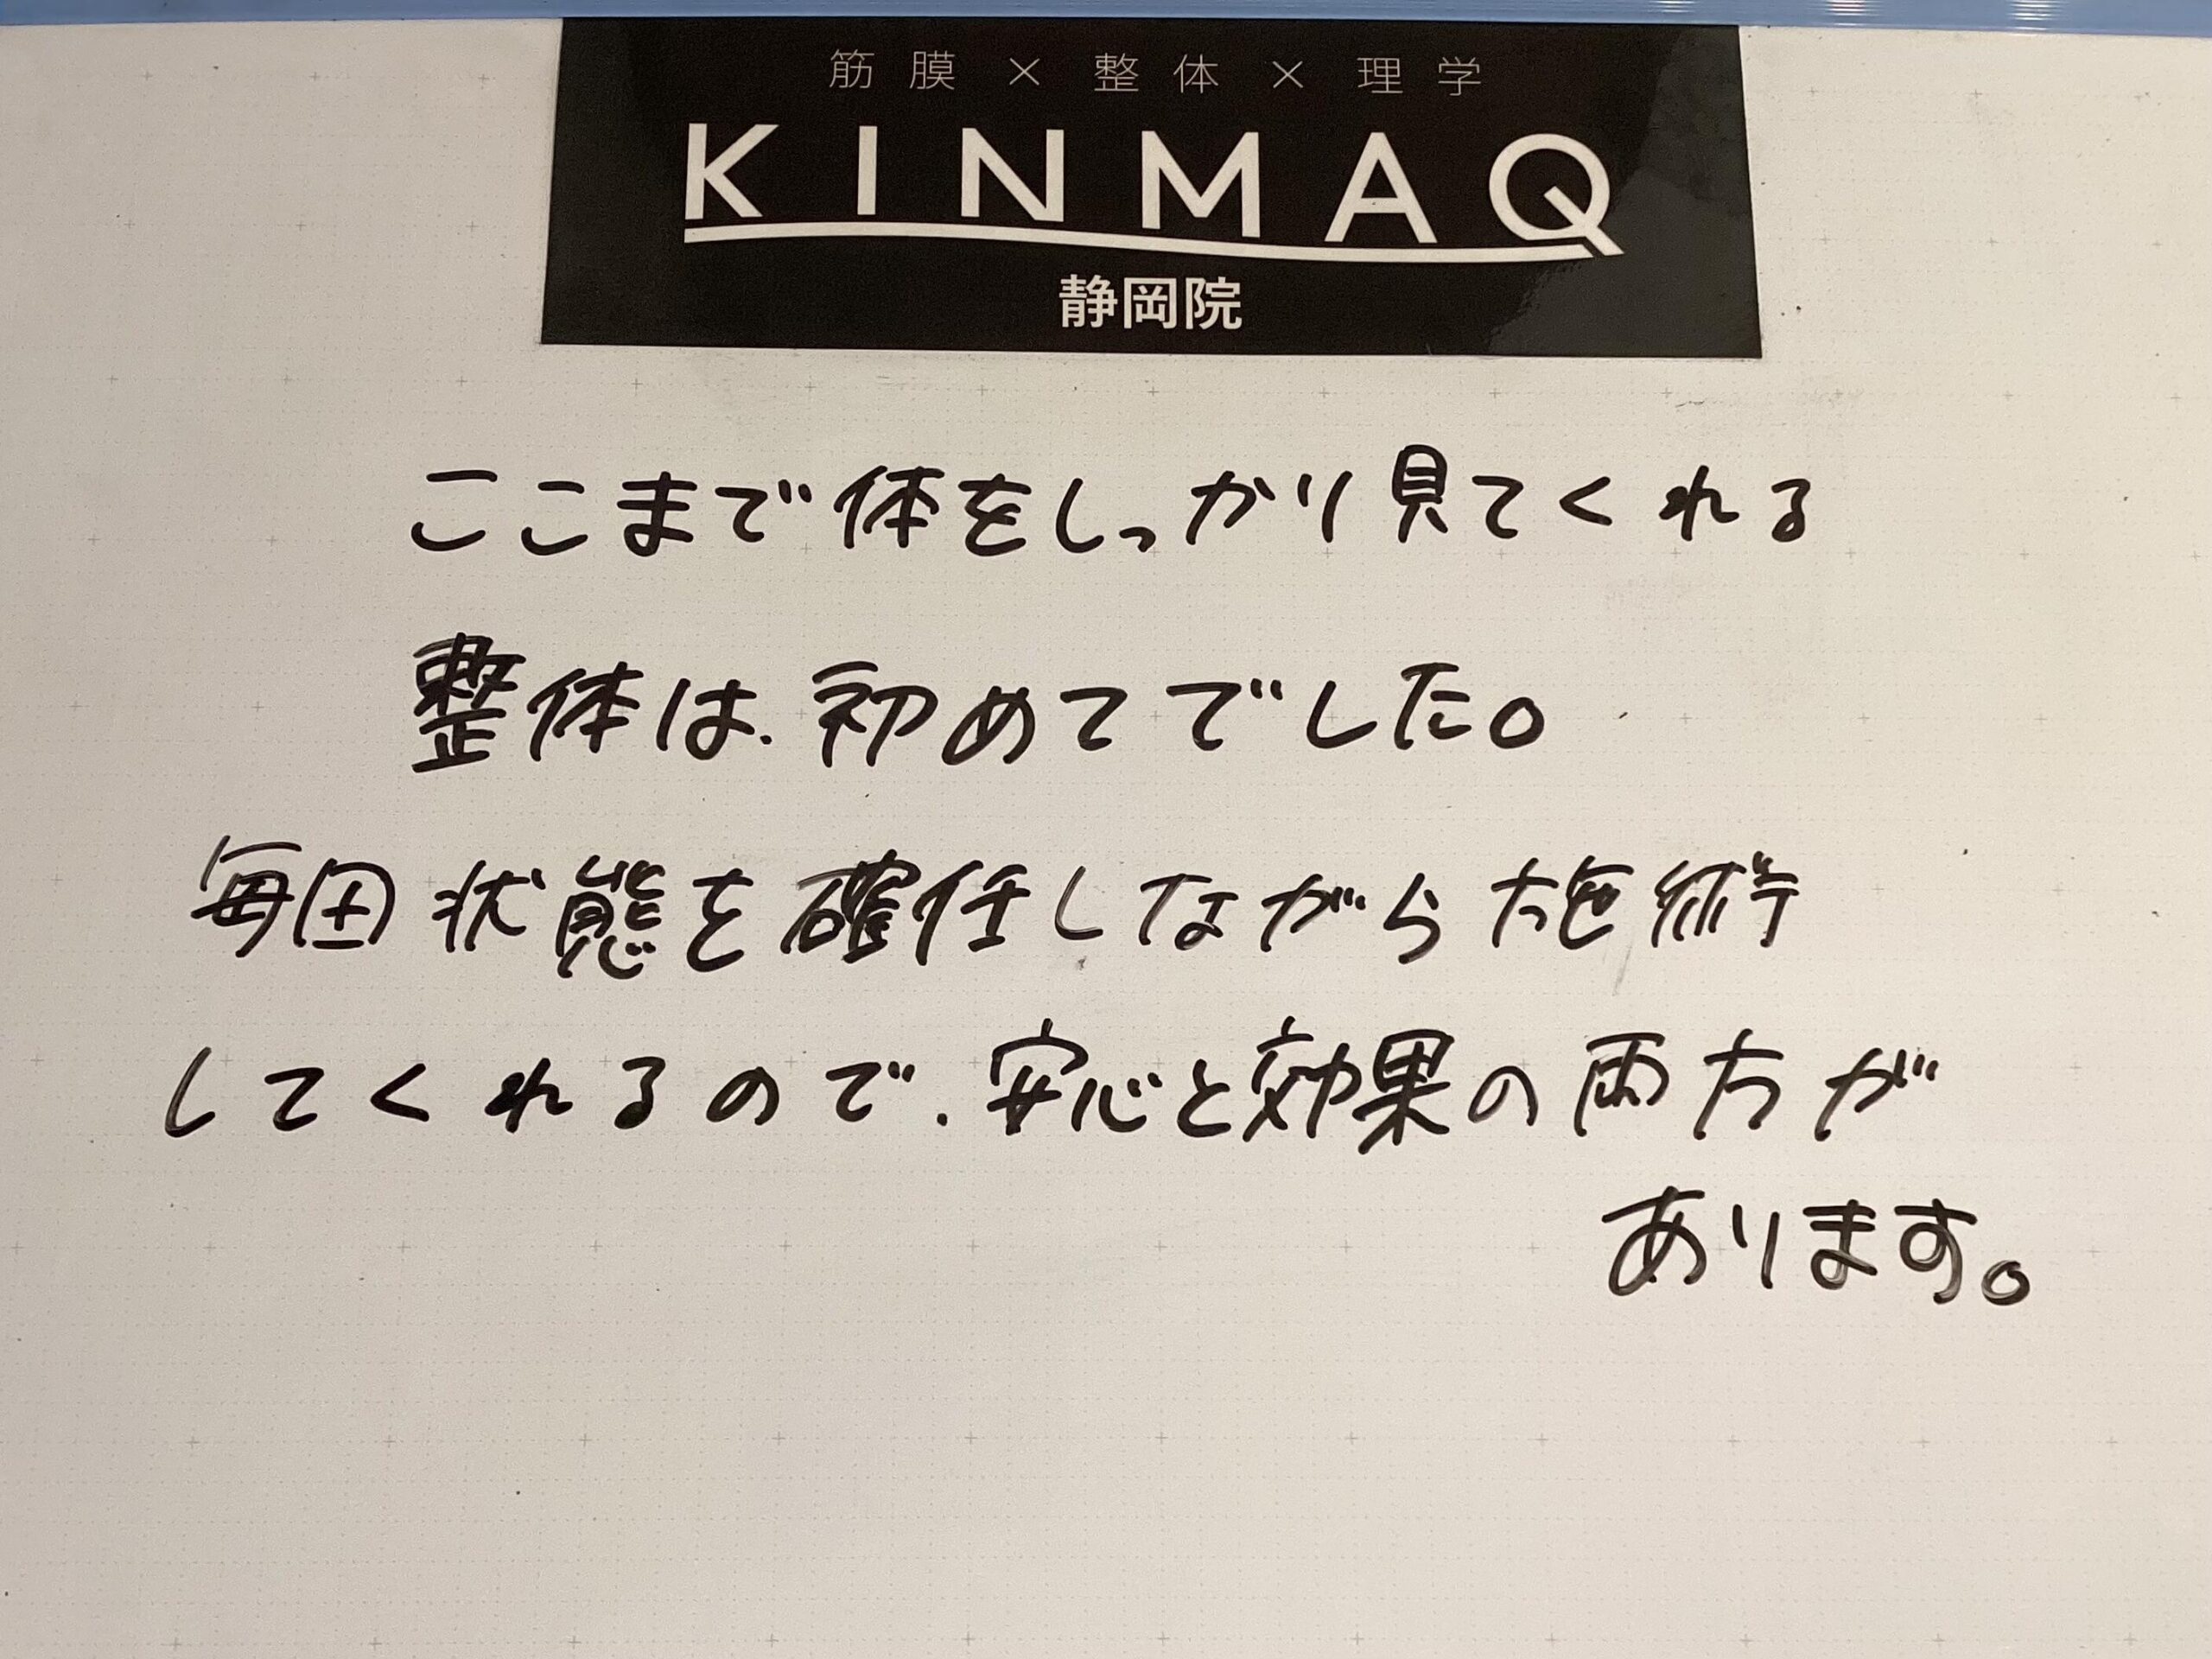 筋膜×整体×理学
KINMAQ
静岡院
ここまで体をしっかり見てくれる
整体は、初めてでした。
毎回状態を確任しながら施術
してくれるので、安心と効果の両方が
あります。